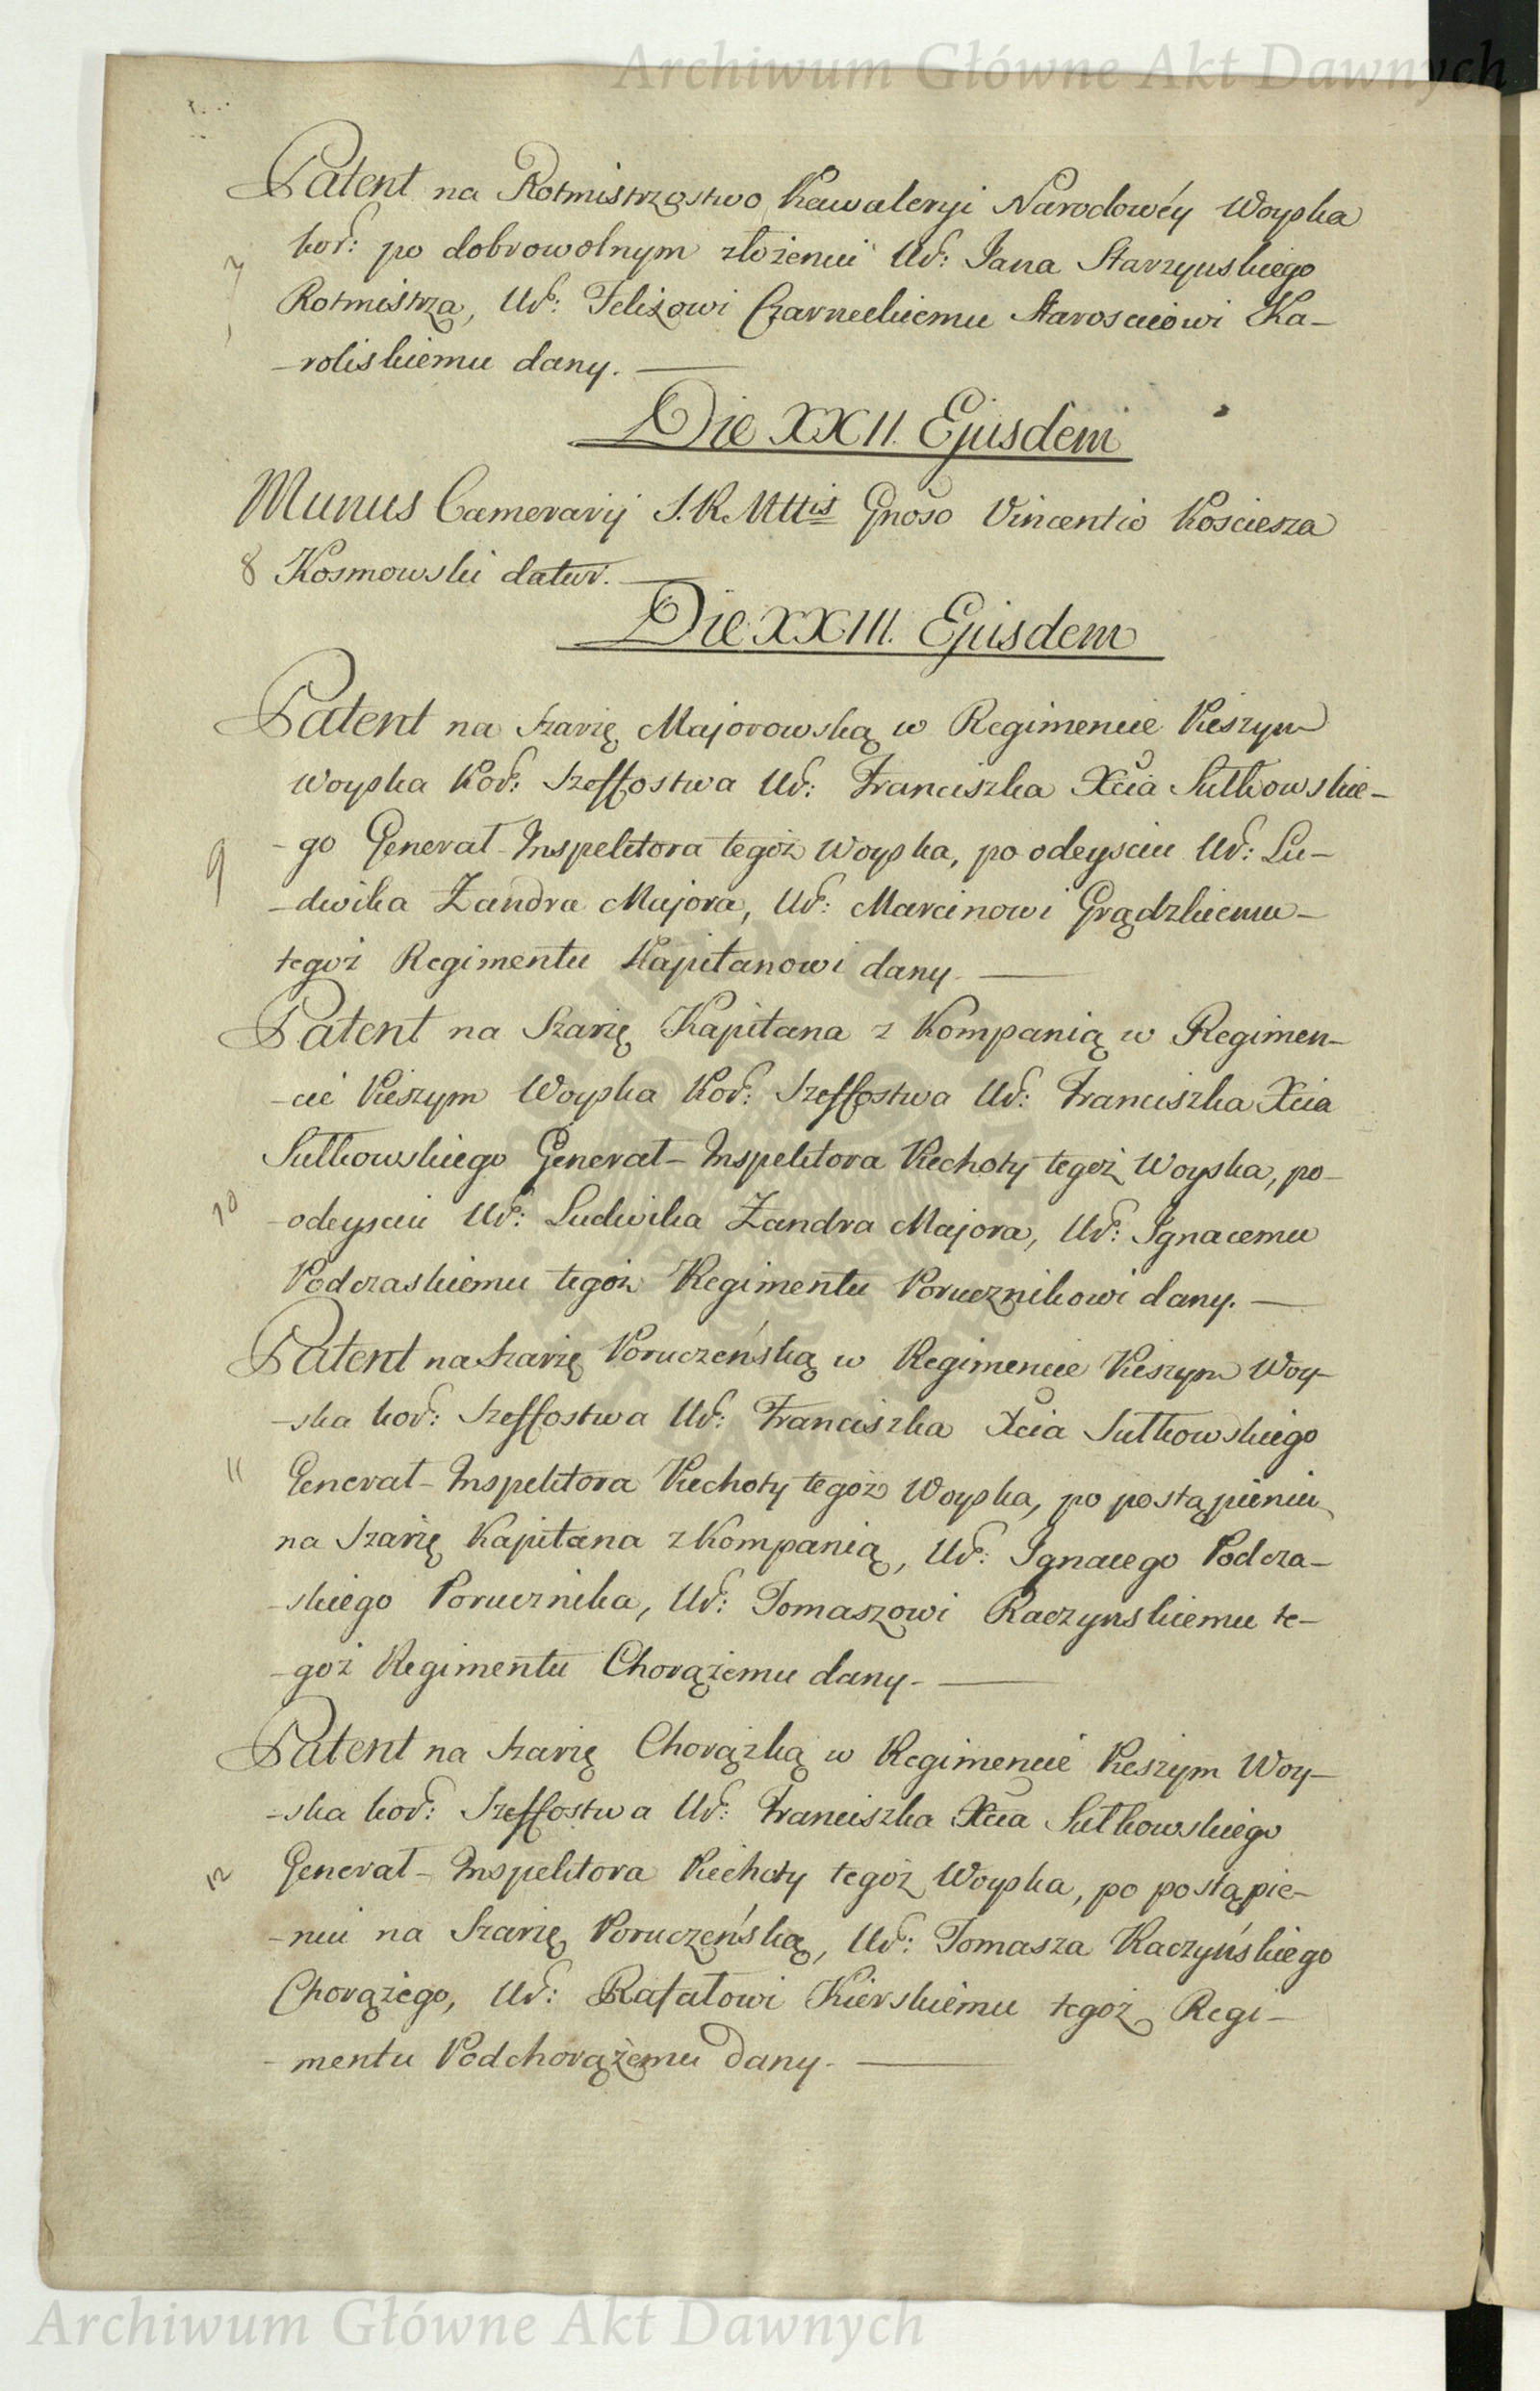 Archiwum Główne Akt Dawnych
Patent na Rotmistrzostwo Kawaleryi Narodowéy Woyska
7
kor: po dobrowolnym złożeniu Ur: Jana Starzyńskiego
Rotmistrza, Ur: Felixowi Czarneckiemu Starosciowi Ka-
-roliskiemu dany.
Die XXII. Ejusdem
Munus Camerarij S. R. Mttis Gnoso Vincentio Kosciesza
8 Kosmowski datur.
Die XXIII. Ejusdem
Patent na Szarżę Majorowską w Regimencie Pieszym
Woyska Kor: Szeffostwa Ur: Franciszka Xcia Sułkowskie-
9
-go Generał-Inspektora tegoż Woyska, po odeysciu Ur: Lu-
-dwika Zandra Majora, Ur: Marcinowi Grądzkiemu-
tegoż Regimentu Kapitanowi dany.
Patent na Szarżę Kapitana z Kompanią w Regimen-
-cie Pieszym Woyska Kor: Szeffostwa Ur: Franciszka Xcia
Sułkowskiego Generał-Inspektora Piechoty tegoż Woyska, po-
10
-odeysciu Ur: Ludwika Zandra Majora, Ur: Ignacemu
Podczaskiemu tegoż Regimentu Porucznikowi dany.
Patent na Szarżę Poruczeńską w Regimencie Pieszym Woy-
-ska kor: Szeffostwa Ur: Franciszka Xcia Sułkowskiego
11
Generał-Inspektora Piechoty tegoż Woyska, po postąpieniu
na Szarżę Kapitana z Kompanią, Ur: Ignacego Podcza-
-skiego Porucznika, Ur: Tomaszowi Raczynskiemu te-
-goż Regimentu Chorążemu dany.
Patent na Szarżę Chorązką w Regimencie Pieszym Woy-
-ska kor: Szeffostwa Ur: Franciszka Xcia Sułkowskiego
12
Generał-Inspektora Piechoty tegoż Woyska, po postąpie-
-niu na Szarżę Poruczeńską, Ur: Tomasza Raczyńskiego
Chorążego, Ur: Rafałowi Kierskiemu tegoż Regi-
-mentu Podchorążemu dany.
Archiwum Główne Akt Dawnych